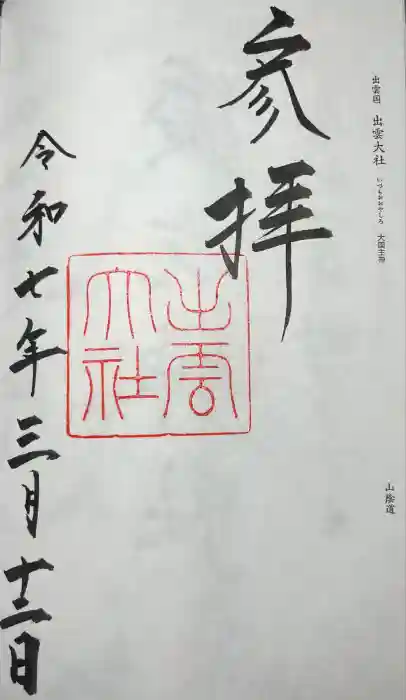 出雲国 出雲大社 いづもおおやしろ 大国主命
山陰道
参拝
出雲大社
令和七年三月十二日